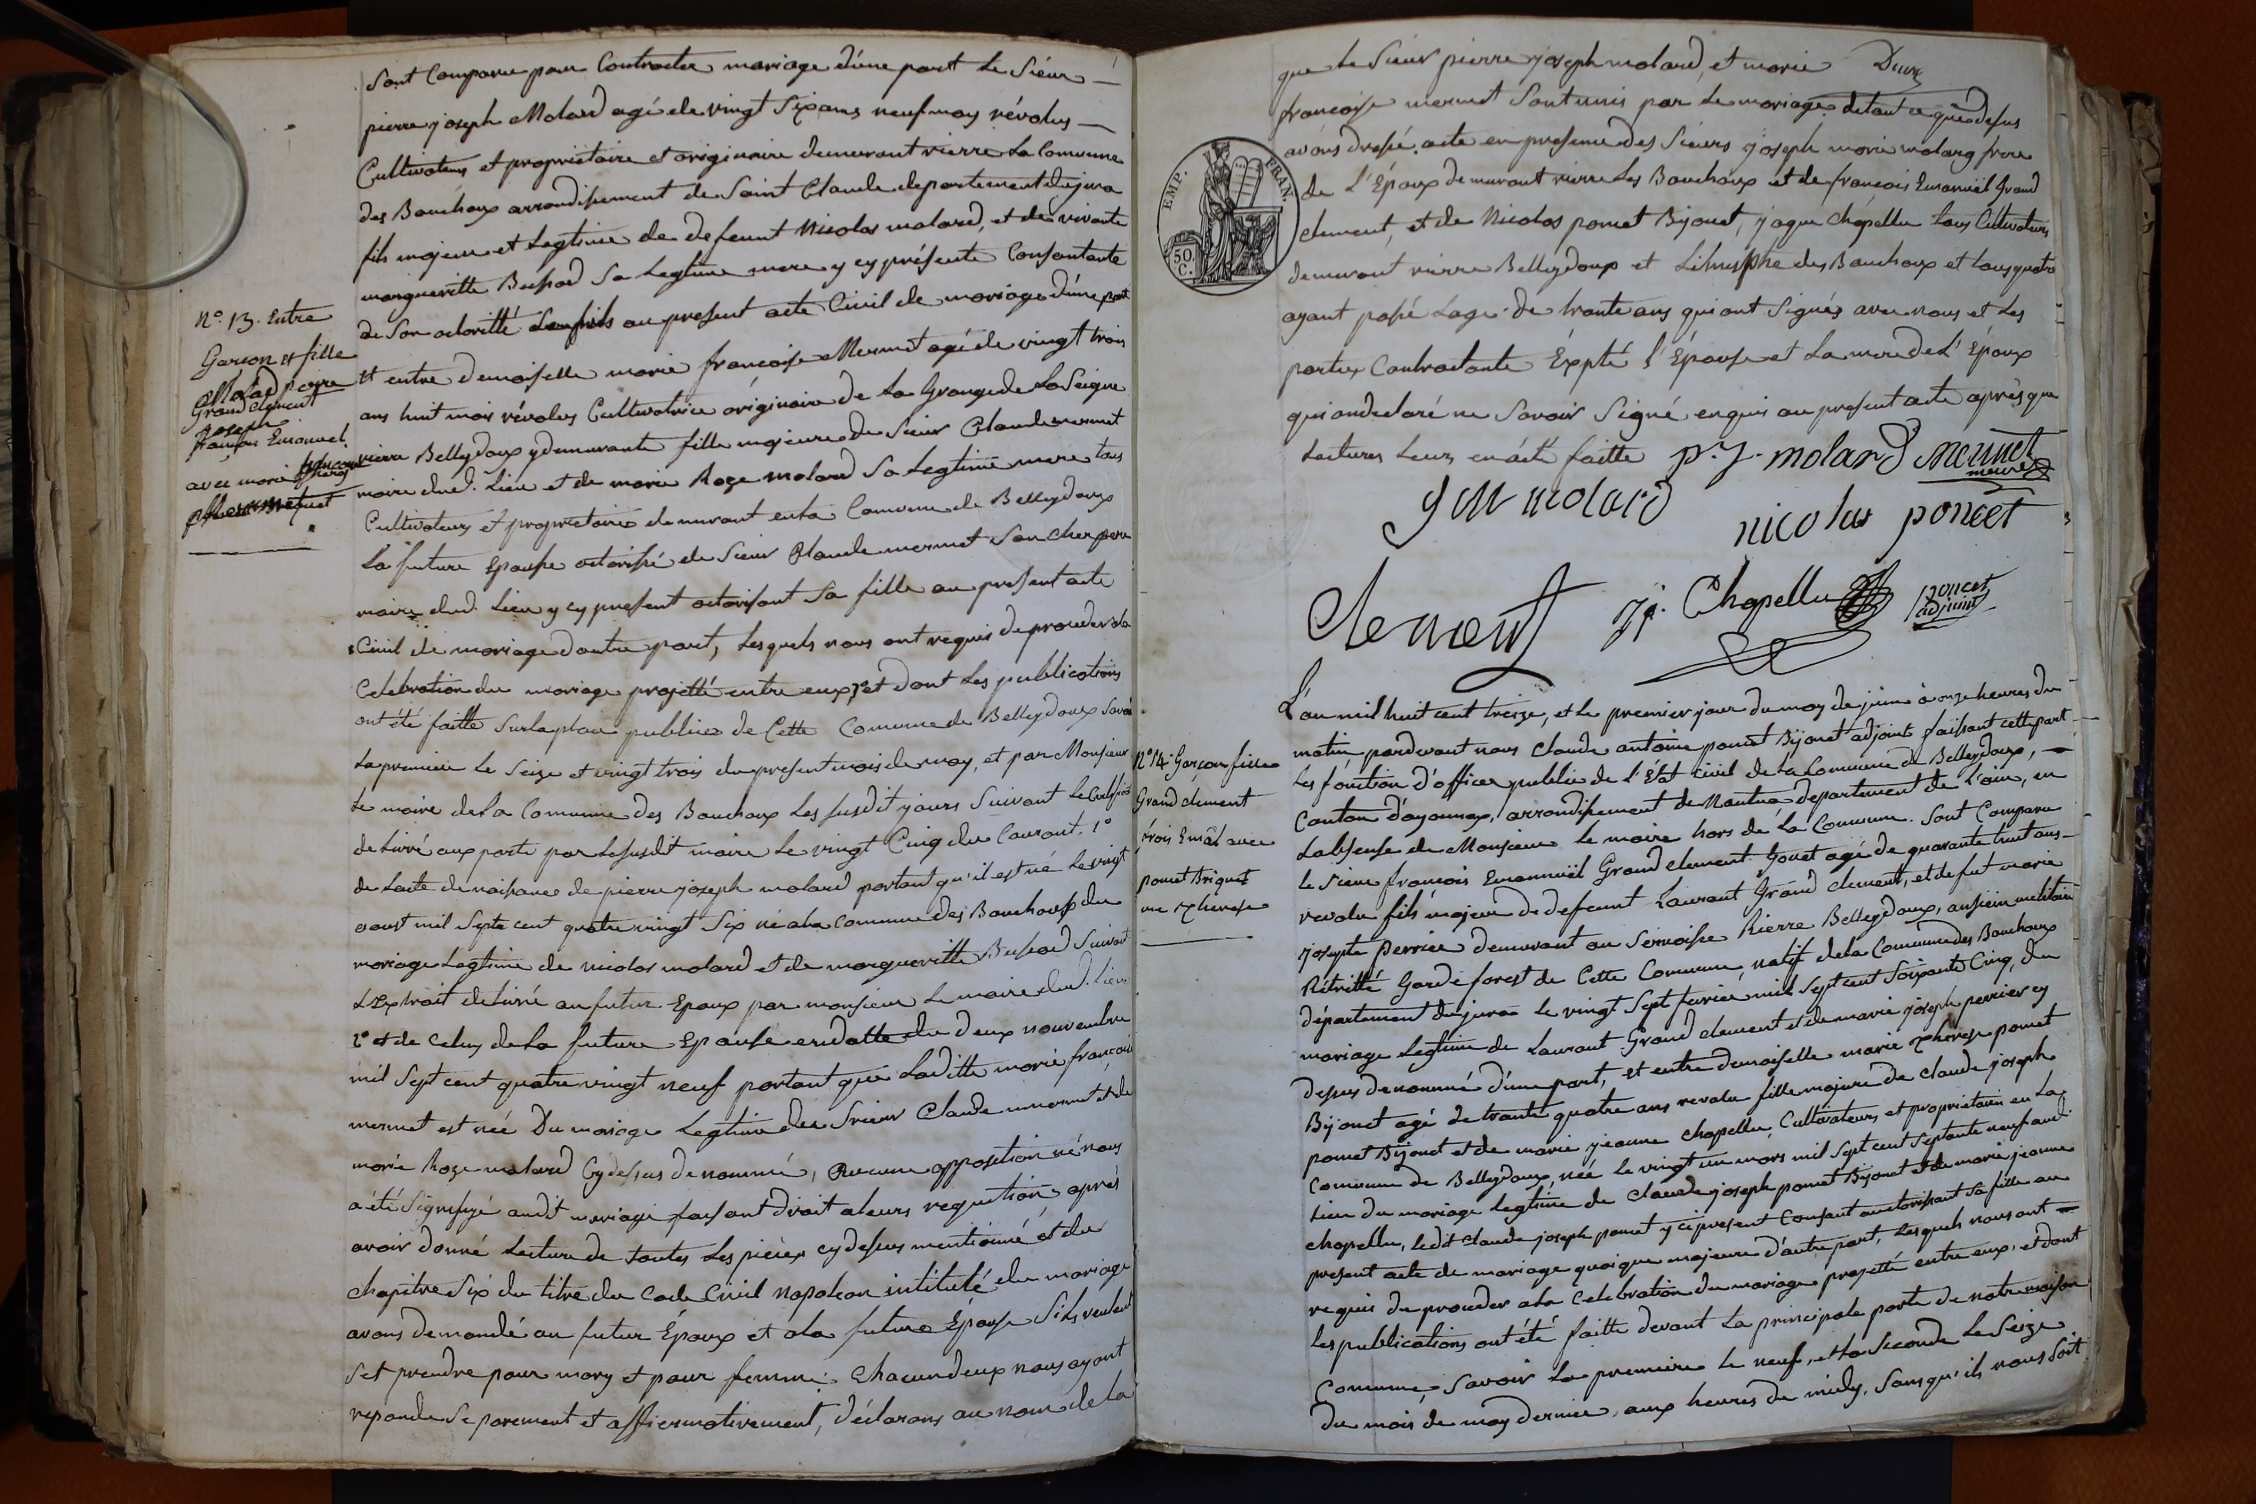 Sont Comparu pour Contracter mariage d'une part Le Sieur
pierre joseph Molard agé de vingt Six ans neuf moy révolus
Cultivateur et propriétaire et originaire demeurant rierre La Comune
des Bouchoux arrondissement de Saint Claude departement du jura
fils majeur et Legtime de deffeunt Nicolas molard, et de vivante
margueritte Bussod Sa Legtime mere y cy présente Consantante
de Son octoritté Son fils au present acte Civil de mariage d'une part
Et entre demoiselle marie francoise Mermet agé de vingt trois
ans huit mois révolus Cultivatrice originaire de La Grange de La Seigne
rierre Belleydoux y demeurante fille majeure de Sieur Claude mermet
maire dud. Lieu et de marie Roze molard Sa Legtime mere tous
Cultivateurs et proprietaires demeurant en La Comune de Belleydoux
La future Epouse octorisé de Sieur Claude mermet Son cher pere
maire dud. Lieu y cy present octorisant Sa fille au present acte
Civil de mariage d'autre part, Lesquels nous ont requis de proceder a La
Celebration du mariage projetté entre eux, et dont Les publications
ont été faitte Sur La place publice de Cette Comune de Belleydoux Savoir
La premiere Le Seize et vingt trois du present mois de may, et par Monsieur
Le maire de La Comune des Bouchoux Les Susdit jours Suivant Le Certificat
deLivré aux partie par Le Susdit maire Le vingt Cinq du Courant. 1°
de L'acte de naissance de pierre joseph molard portant qu'il est né Le vingt
aoust mil Sept cent quatre vingt Six né a La Comune des Bouchoux du
mariage Legtime de nicolas molard et de margueritte Bussod Suivant
L'Extrait deLivré au futur Epoux par monsieur Le maire dud. Lieu
2° et de Celuy de La future Epouse en datte du deux nouvembre
mil Sept cent quatre vingt neuf portant que Laditte marie francoise
mermet est née Du mariage Legtime des Srieur Claude mermet et de
marie Roze molard Cy dessus denommé, Aucune opposition né nous
a été Signifiyé audit mariage faisant droit a leurs requetion, après
avoir donné Lecture de toutes Les pièces cy dessus mentionné et du
chapitre Six du titre du Code Civil Napoleon intitulé du mariage
avons demandé au futur Époux et a La future Épouse S'ils veulent
Set prendre pour mary et pour femme: Chacun deux nous ayant
reponde Séparement et affiermativement, déclarons au nom de La
N° 13. Entre
Garcon et fille
Molard pierre
Grand Clement
Joseph
francois Emanuel
avec marie
que Le Sieur pierre joseph molard, et marie
francoise mermet Sont unis par Le mariage de tout ce que dessus
avons dressé acte en presence des Sieurs joseph marie molard frere
de L'Époux demeurant rierre Les Bouchoux et de francois Emanuël Grand
clement, et de Nicolas poncet Bijouet, jaque Chapellu tous Cultivateurs
demeurant rierre Belleydoux et des Bouchoux et tous quatre
ayant passé L'age de trante ans qui ont Signés avec nous et Les
parties Contractante Éxpté L'Épouse et La mere de L'Époux
qui ont declaré ne Savoir Signé enquis au present acte après que
Lectures Leurs en a été faitte
P. J. molard Mermet
meire
J M molard
nicolas poncet
Clement
J. Chapellu
poncet
adjoint
EMP. FRAN.
50
C.
L'an mil huit cent treize, et Le premier jour du moy de juin à onze heures du
matin, pardevant nous Claude antoine poncet Bijouet adjoint faisant cette part
Les fonction d'officier publice de L'État Civil de La Comune de Belleydoux,
Canton d'oyonnax, arrondissement de Nantua departement de L'ain, en
L'absense de Monsieur Le maire hors de La Commune. Sont Comparu
le Sieur francois Emanuiël Grand clement Gouet agé de quarante huit ans
revolu fils majeur de deffeunt Laurant Grand Clement, et de fut marie
josepte perrier demeurant au Sernoise Rierre Belleydoux, ansiein militaire
Rétritté Garde forest de Cette Commune, natif de La Commune des Bouchoux
département du jura le vingt Sept fevrier mil Sept cent Soixante Cinq, du
mariage Legtime de Laurant Grand clement et de marie joseph perrier cy
dessus denommé d'une part, et entre demoiselle marie therese poncet
Bijouet agé de trante quatre ans revolu fille majure de claude joseph
poncet Bijouet et de marie jeanne chapellu, Cultivateurs et proprietaire en La
Comune de Belleydoux, née Le vingt un mars mil Sept cent Septante neuf aud.
Lieu du mariage Legtime de claude joseph poncet Bijouet et de marie jeanne
chapellu, Ledit Claude joseph poncet y ci present Consant auctorisant Sa fille au
present acte de mariage quoique majeure d'autre part, Lesquels nous ont
requis de proceder a La Celebration du mariage projetté entre eux, et dont
Les publications ont été faitte devant La principale porte de notre maison
Comune, Savoir La premiere Le neuf, et La Seconde Le Seize
du mois de may dernier, aux heures de midy, Sans qu'ils nous Soit
N° 14. Garcon fille
Grand clement
frois Emâl avec
poncet Briquet
rie therese